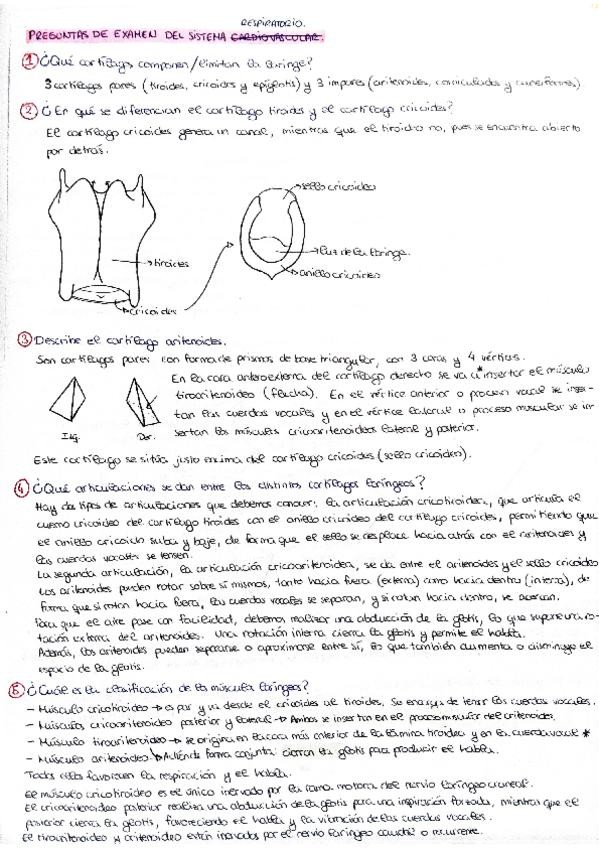 RESPIRATORIO.
PREGUNTAS DE EXAMEN DEL SISTEMA CARDIOVASCULAR.
① ¿Qué cartílagos componen/limitan la laringe?
3 cartílagos pares (tiroides, cricoides y epiglotis) y 3 impares (aritenoides, corniculados y cuneiformes)
② ¿En qué se diferencian el cartílago tiroides y el cartílago cricoides?
El cartílago cricoides genera un canal, mientras que el tiroides no, pues se encuentra abierto
por detrás.
sello cricoideo
tiroides
luz de la laringe.
anillo cricoideo
cricoides
③ Describe el cartílago aritenoides.
Son cartílagos pares con forma de prismas de base triangular, con 3 caras y 4 vértices.
En la cara anteroexterna del cartílago derecho se va a* insertar el músculo
tiroaritenoideo (flecha). En el vértice anterior o proceso vocal se inser-
tan las cuerdas vocales y en el vértice lateral o proceso muscular se in-
sertan los músculos cricoaritenoideos lateral y posterior.
Izq. Der.
Este cartílago se sitúa justo encima del cartílago cricoides (sello cricoideo).
④ ¿Qué articulaciones se dan entre los distintos cartílagos laríngeos?
Hay dos tipos de articulaciones que debemos conocer: la articulación cricotiroidea, que articula el
cuerno cricoideo del cartílago tiroides con el anillo cricoideo del cartílago cricoides, permitiendo que
el anillo cricoideo suba y baje, de forma que el sello se desplace hacia atrás con el aritenoides y
las cuerdas vocales se tensen.
La segunda articulación, la articulación cricoaritenoidea, se da entre el aritenoides y el sello cricoideo
Los aritenoides pueden rotar sobre sí mismos, tanto hacia fuera (externa) como hacia dentro (interna), de
forma que si rotan hacia fuera, las cuerdas vocales se separan, y si rotan hacia dentro, se acercan.
Para que el aire pase con facilidad, debemos realizar una abducción de la glotis, lo que supone una ro-
tación externa del aritenoides. Una rotación interna cierra la glotis y permite el habla.
Además, los aritenoides pueden separarse o aproximarse entre sí, lo que también aumenta o disminuye el
espacio de la glotis.
⑤ ¿Cuál es la clasificación de los músculos laríngeos?
- Músculo cricotiroideo → es par y va desde el cricoides al tiroides. Se encarga de tensar las cuerdas vocales.
- Músculos cricoaritenoideo posterior y lateral → Ambos se insertan en el proceso muscular del aritenoides.
- Músculo tiroaritenoideo → se origina en la cara más anterior de la lámina tiroidea y en la cuerda vocal *
- Músculo aritenoideo forma conjunta: cierran la glotis para producir el habla.
Todos ellos favorecen la respiración y el habla.
El músculo cricotiroideo es el único inervado por la rama motora del nervio laríngeo craneal.
El cricoaritenoideo posterior realiza una abducción de la glotis para una inspiración forzada, mientras que el
posterior cierra la glotis, favoreciendo el habla y la vibración de las cuerdas vocales.
El tiroaritenoideo y aritenoideo están inervados por el nervio laríngeo caudal o recurrente.